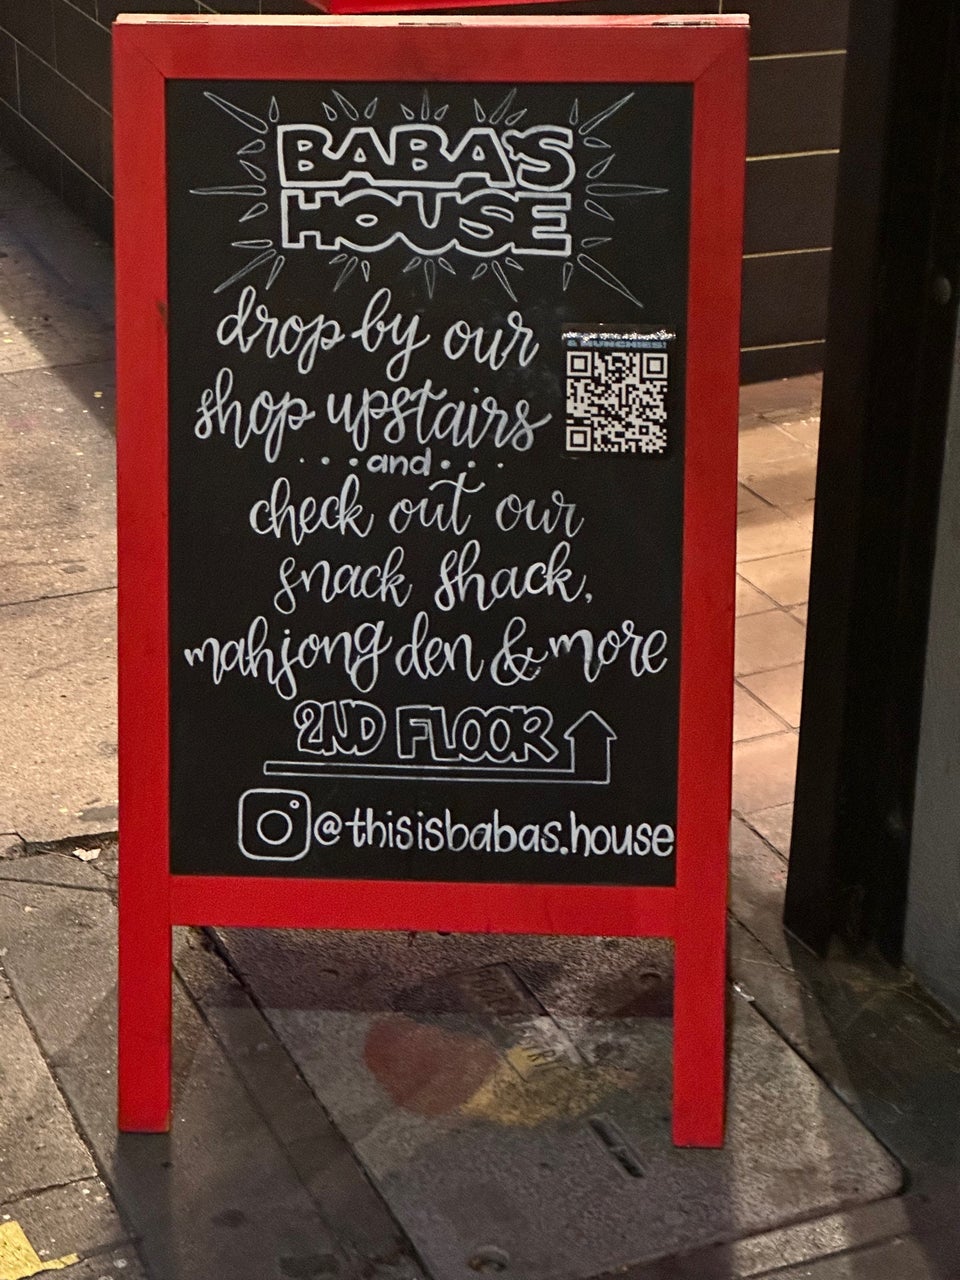 BABA'S
HOUSE
drop by our
shop upstairs
...and...
check out our
snack shack,
mahjong den & more
2ND FLOOR
@thisisbabas.house
& MUNCHIES!